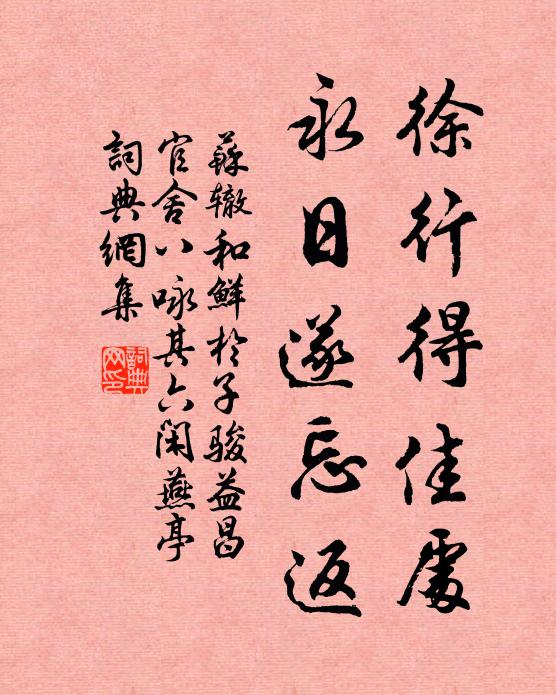 徐行得佳處
永日遂忘返
蘇辙和鮮於子駿益昌
官舍八咏其六閑燕亭
詞典網集
詞典网印